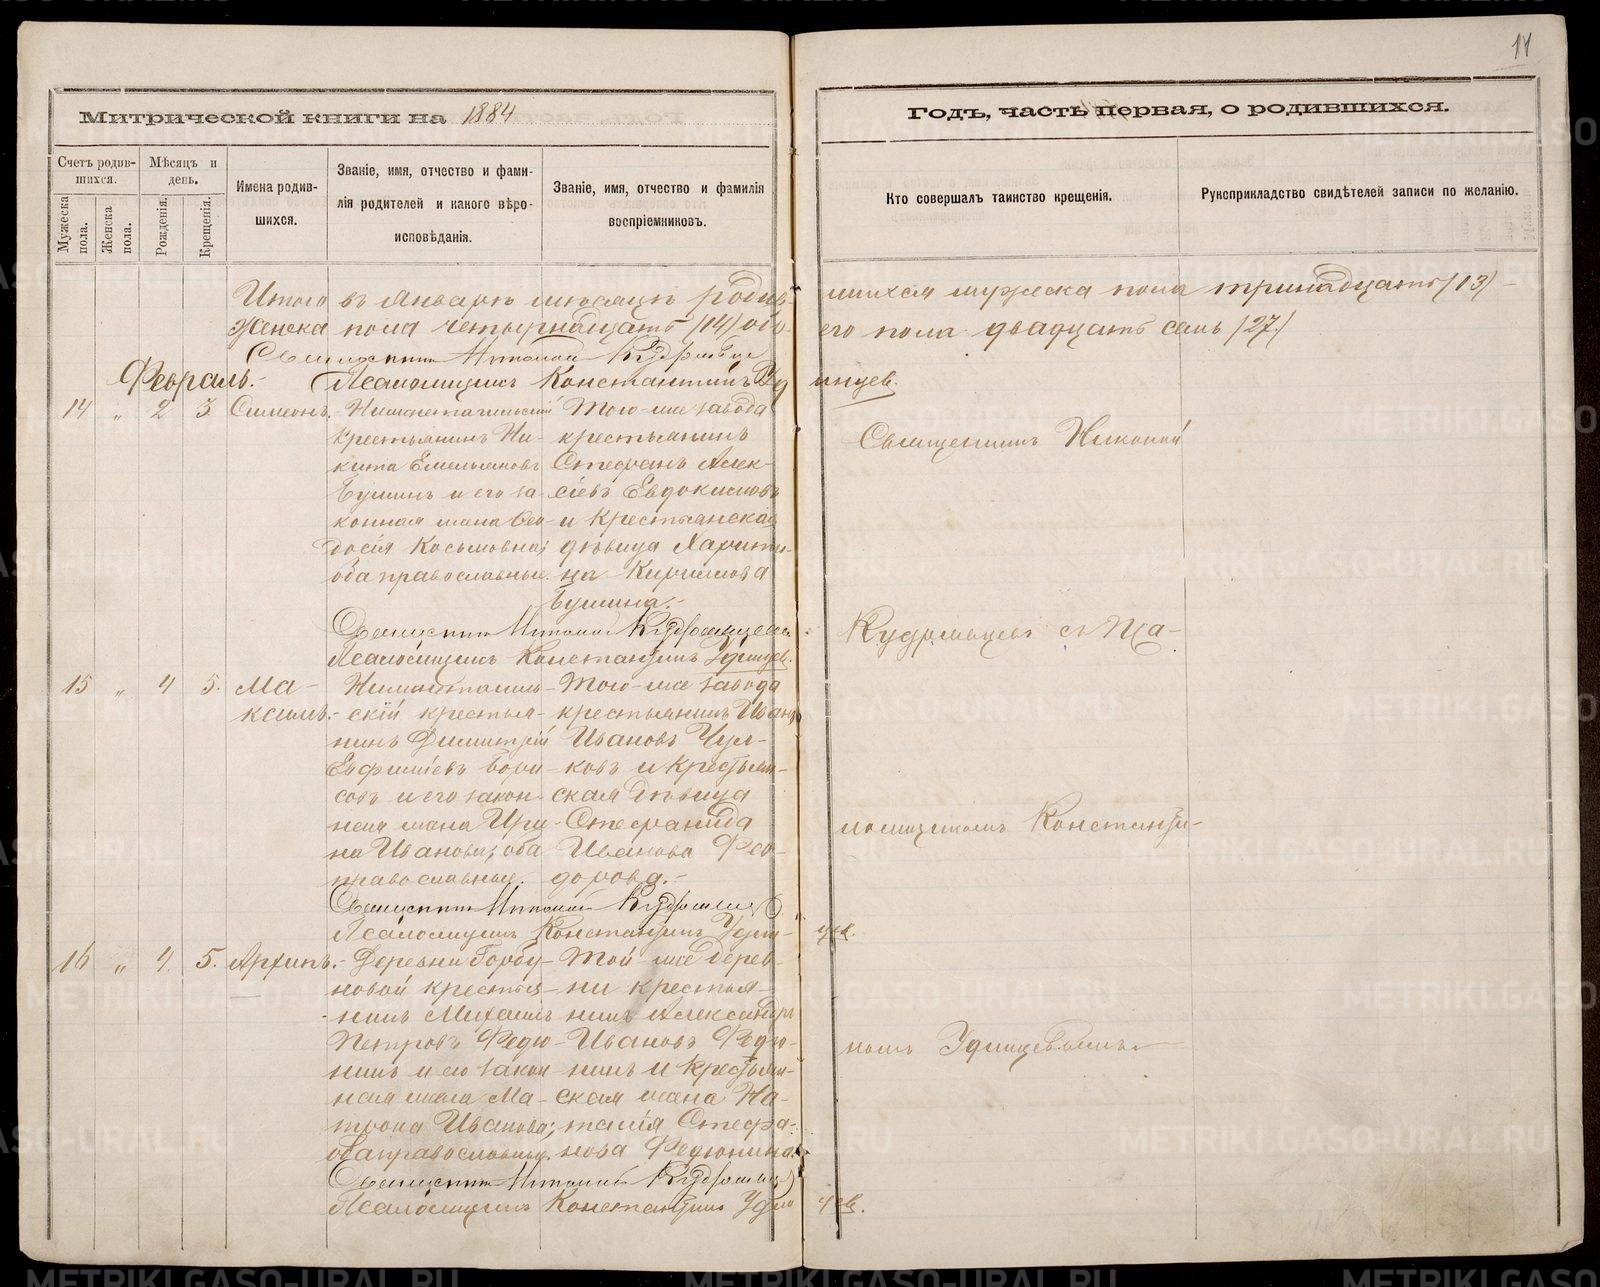 14
Митрической книги на 1884
Годъ, часть первая, о родившихся.
Счетъ родив-
шихся.
Мужеска пола.
Женска пола.
Мѣсяцъ и
день.
Рожденія.
Крещенія.
Имена родив-
шихся.
Званіе, имя, отчество и фами-
лія родителей и какого вѣро-
исповѣданія.
Званіе, имя, отчество и фамилія
воспріемниковъ.
Кто совершалъ таинство крещенія.
Рукоприкладство свидѣтелей записи по желанію.
Итого въ Январѣ мѣсяцѣ родив- шихся мужеска пола тринадцать (13) –
Женска пола четырнадцать (14) обо- его пола двадцать семь (27)
Священникъ Николай Кудрявцев
Февраль.- Псаломщикъ Константинъ Удинцев.
14 " 2 3 Симеонъ.
Крестьянинъ Ни-
кита Емельяновъ
Бушинъ и его за-
конная жена Ѳео-
досія Косьмовна;
оба православные.
Того-же завода
крестьянинъ
Стефанъ Алек-
сіевъ Евдокимовъ
и Крестьянская
дѣвица Харити-
на Кириллова
Бушина.-
Священникъ Николай Кудрявцевъ
Псаломщикъ Константинъ Удинцев.
15 " 4 5. Ма-
ксимъ.-
скій крестья-
нинъ Димитрій
Евфиміевъ Бори-
совъ и его закон-
ная жена Ири-
на Иванова; оба
православные.
Того-же завода
крестьянинъ Иванъ
Ивановъ
и крестьян-
ская дѣвица
Стефанида
Иванова Фео-
дорова.-
Священникъ Николай Кудрявцев
Псаломщикъ Константинъ Удин- цев.
16 " 4 5. Архипъ.-
Деревни Горбу-
новой крестья-
нинъ Михаилъ
Петровъ Федю-
нинъ и его закон-
ная жена Ма-
трона Иванова;
оба православные.
Той-же дерев-
ни крестья-
нинъ Александръ
Ивановъ Федю-
нинъ и крестьян-
ская жена На-
талія Стефа-
нова Федюнина.
Священникъ Николай Кудрявцев
Псаломщикъ Константинъ Удин- цев.
Священникъ Николай
Кудрявцевъ съ Пса-
ломщикомъ Константи-
номъ Удинцевымъ.
METRIKI.GASO-URAL.RU